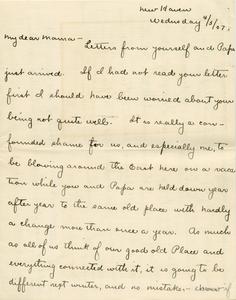 New Haven
Wednesday 4/3/07.
My dear Mama-
Letters from yourself and Papa
just arrived. If I had not read your letter
first I should have been worried about your
being not quite well. It is really a con-
founded shame for us, and especially me, to
be blowing around the East here on a vaca-
tion while you and Papa are held down year
after year to the same old place with hardly
a change more than once a year. As much
as all of us think of our good old Place and
everything connected with it, it is going to be
different next winter, and no mistake;- of